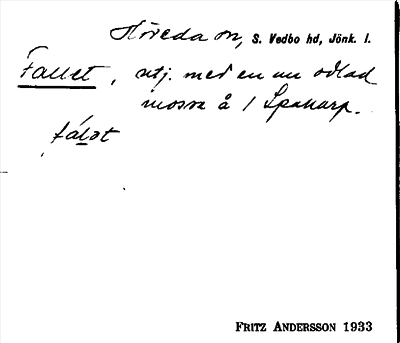 Höreda sn, S. Vedbo hd, Jönk. l.
Fallet, utj. med en nu odlad
mosse å / Spakarp.
fál̲ət
FRITZ ANDERSSON 1933